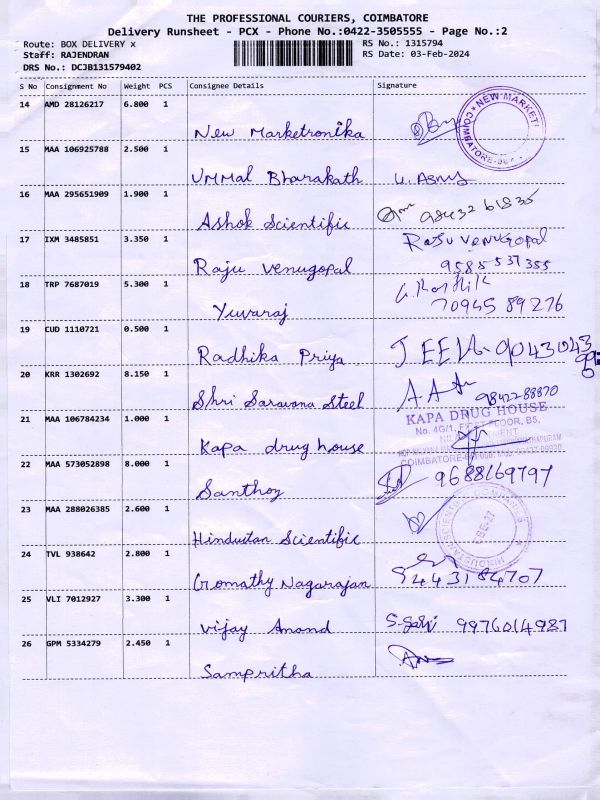 THE PROFESSIONAL COURIERS, COIMBATORE
Delivery Runsheet - PCX - Phone No.:0422-3505555 - Page No.:2
Route: BOX DELIVERY x
RS No.: 1315794
Staff: RAJENDRAN
RS Date: 03-Feb-2024
DRS No.: DCJB131579402
S No Consignment No Weight PCS Consignee Details Signature
14 AMD 28126217 6.800 1
New Marketronika
NEW MARKET
COIMBATORE
15 MAA 106925788 2.500 1
UMMal Bharakath
16 MAA 295651909 1.900 1
Ashok Scientific 98432 61835
17 IXM 3485851 3.350 1
Raju Venugopal
Raju venugopal
9585537355
18 TRP 7687019 5.300 1
Yuvaraj 70945 89276
19 CUD 1110721 0.500 1
Radhika Priya
20 KRR 1302692 8.150 1
Shri Saravana Steel 9842288870
21 MAA 106784234 1.000 1
Kapa drug house
KAPA DRUG HOUSE
No. 4G/1, FIRST FLOOR, B5,
22 MAA 573052898 8.000 1
Santhoz 9688169797
23 MAA 288026385 2.600 1
Hindustan Scientific
HINDUSTAN SCIENTIFIC
24 TVL 938642 2.800 1
Gomathy Nagarajan 9443184707
25 VLI 7012927 3.300 1
Vijay Anand 9976014987
26 GPM 5334279 2.450 1
Sampritha